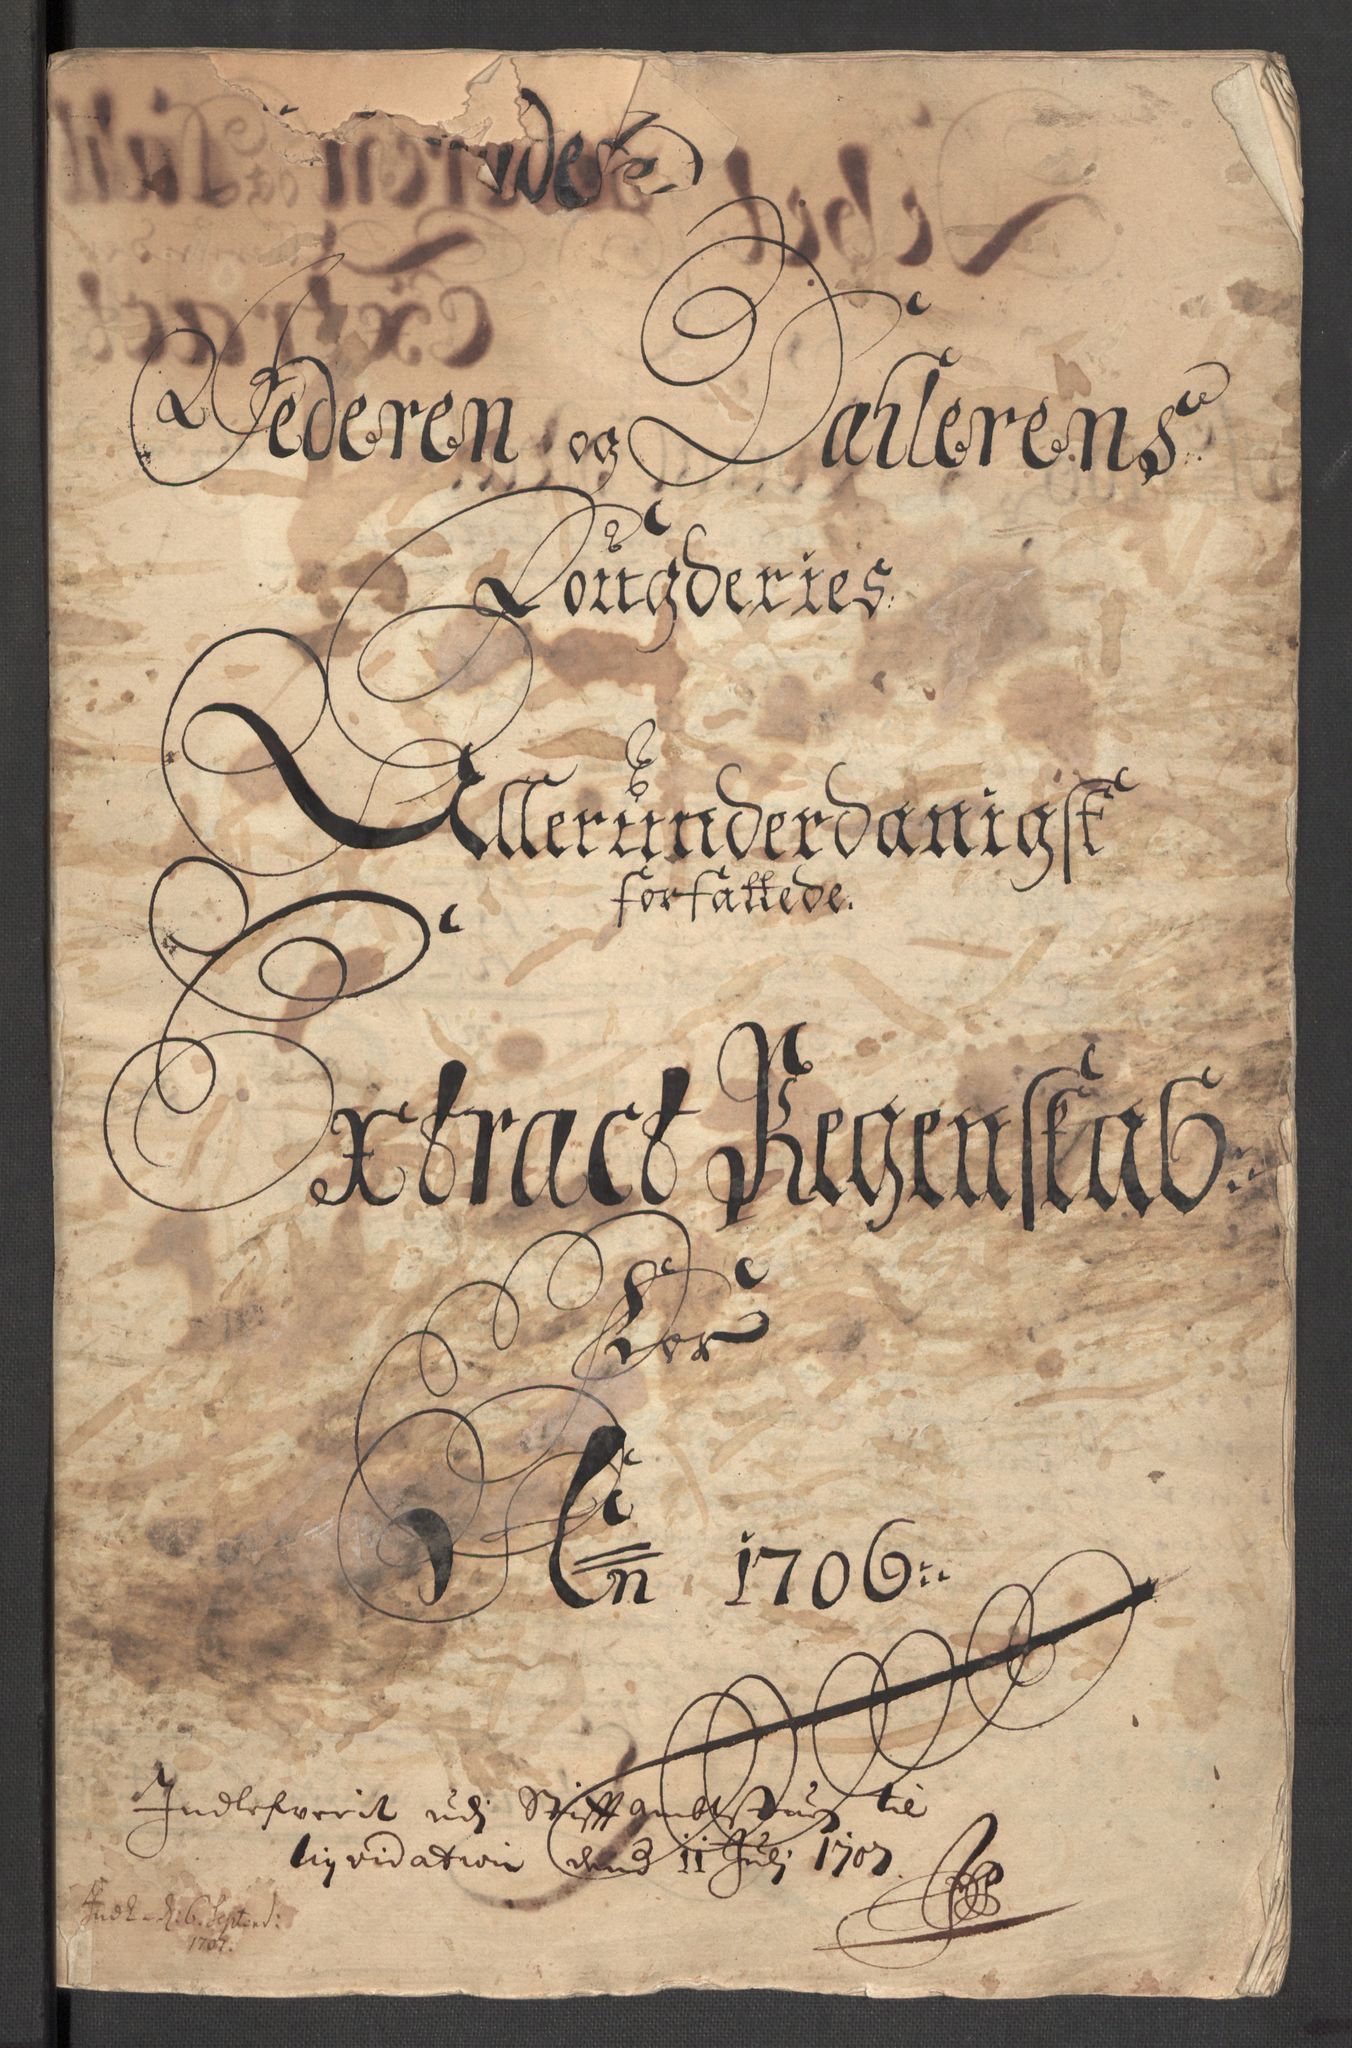 Jederen og Dahlerens
Fougderies
Alleründerdanigst
forfattede.
Extract Regenskab
For
An 1706
Indlefverit udj Stifft Ambtstuen til
liqvidation dend 11 Julj 1707.
Indl. d: 6. Septemb:
1707.